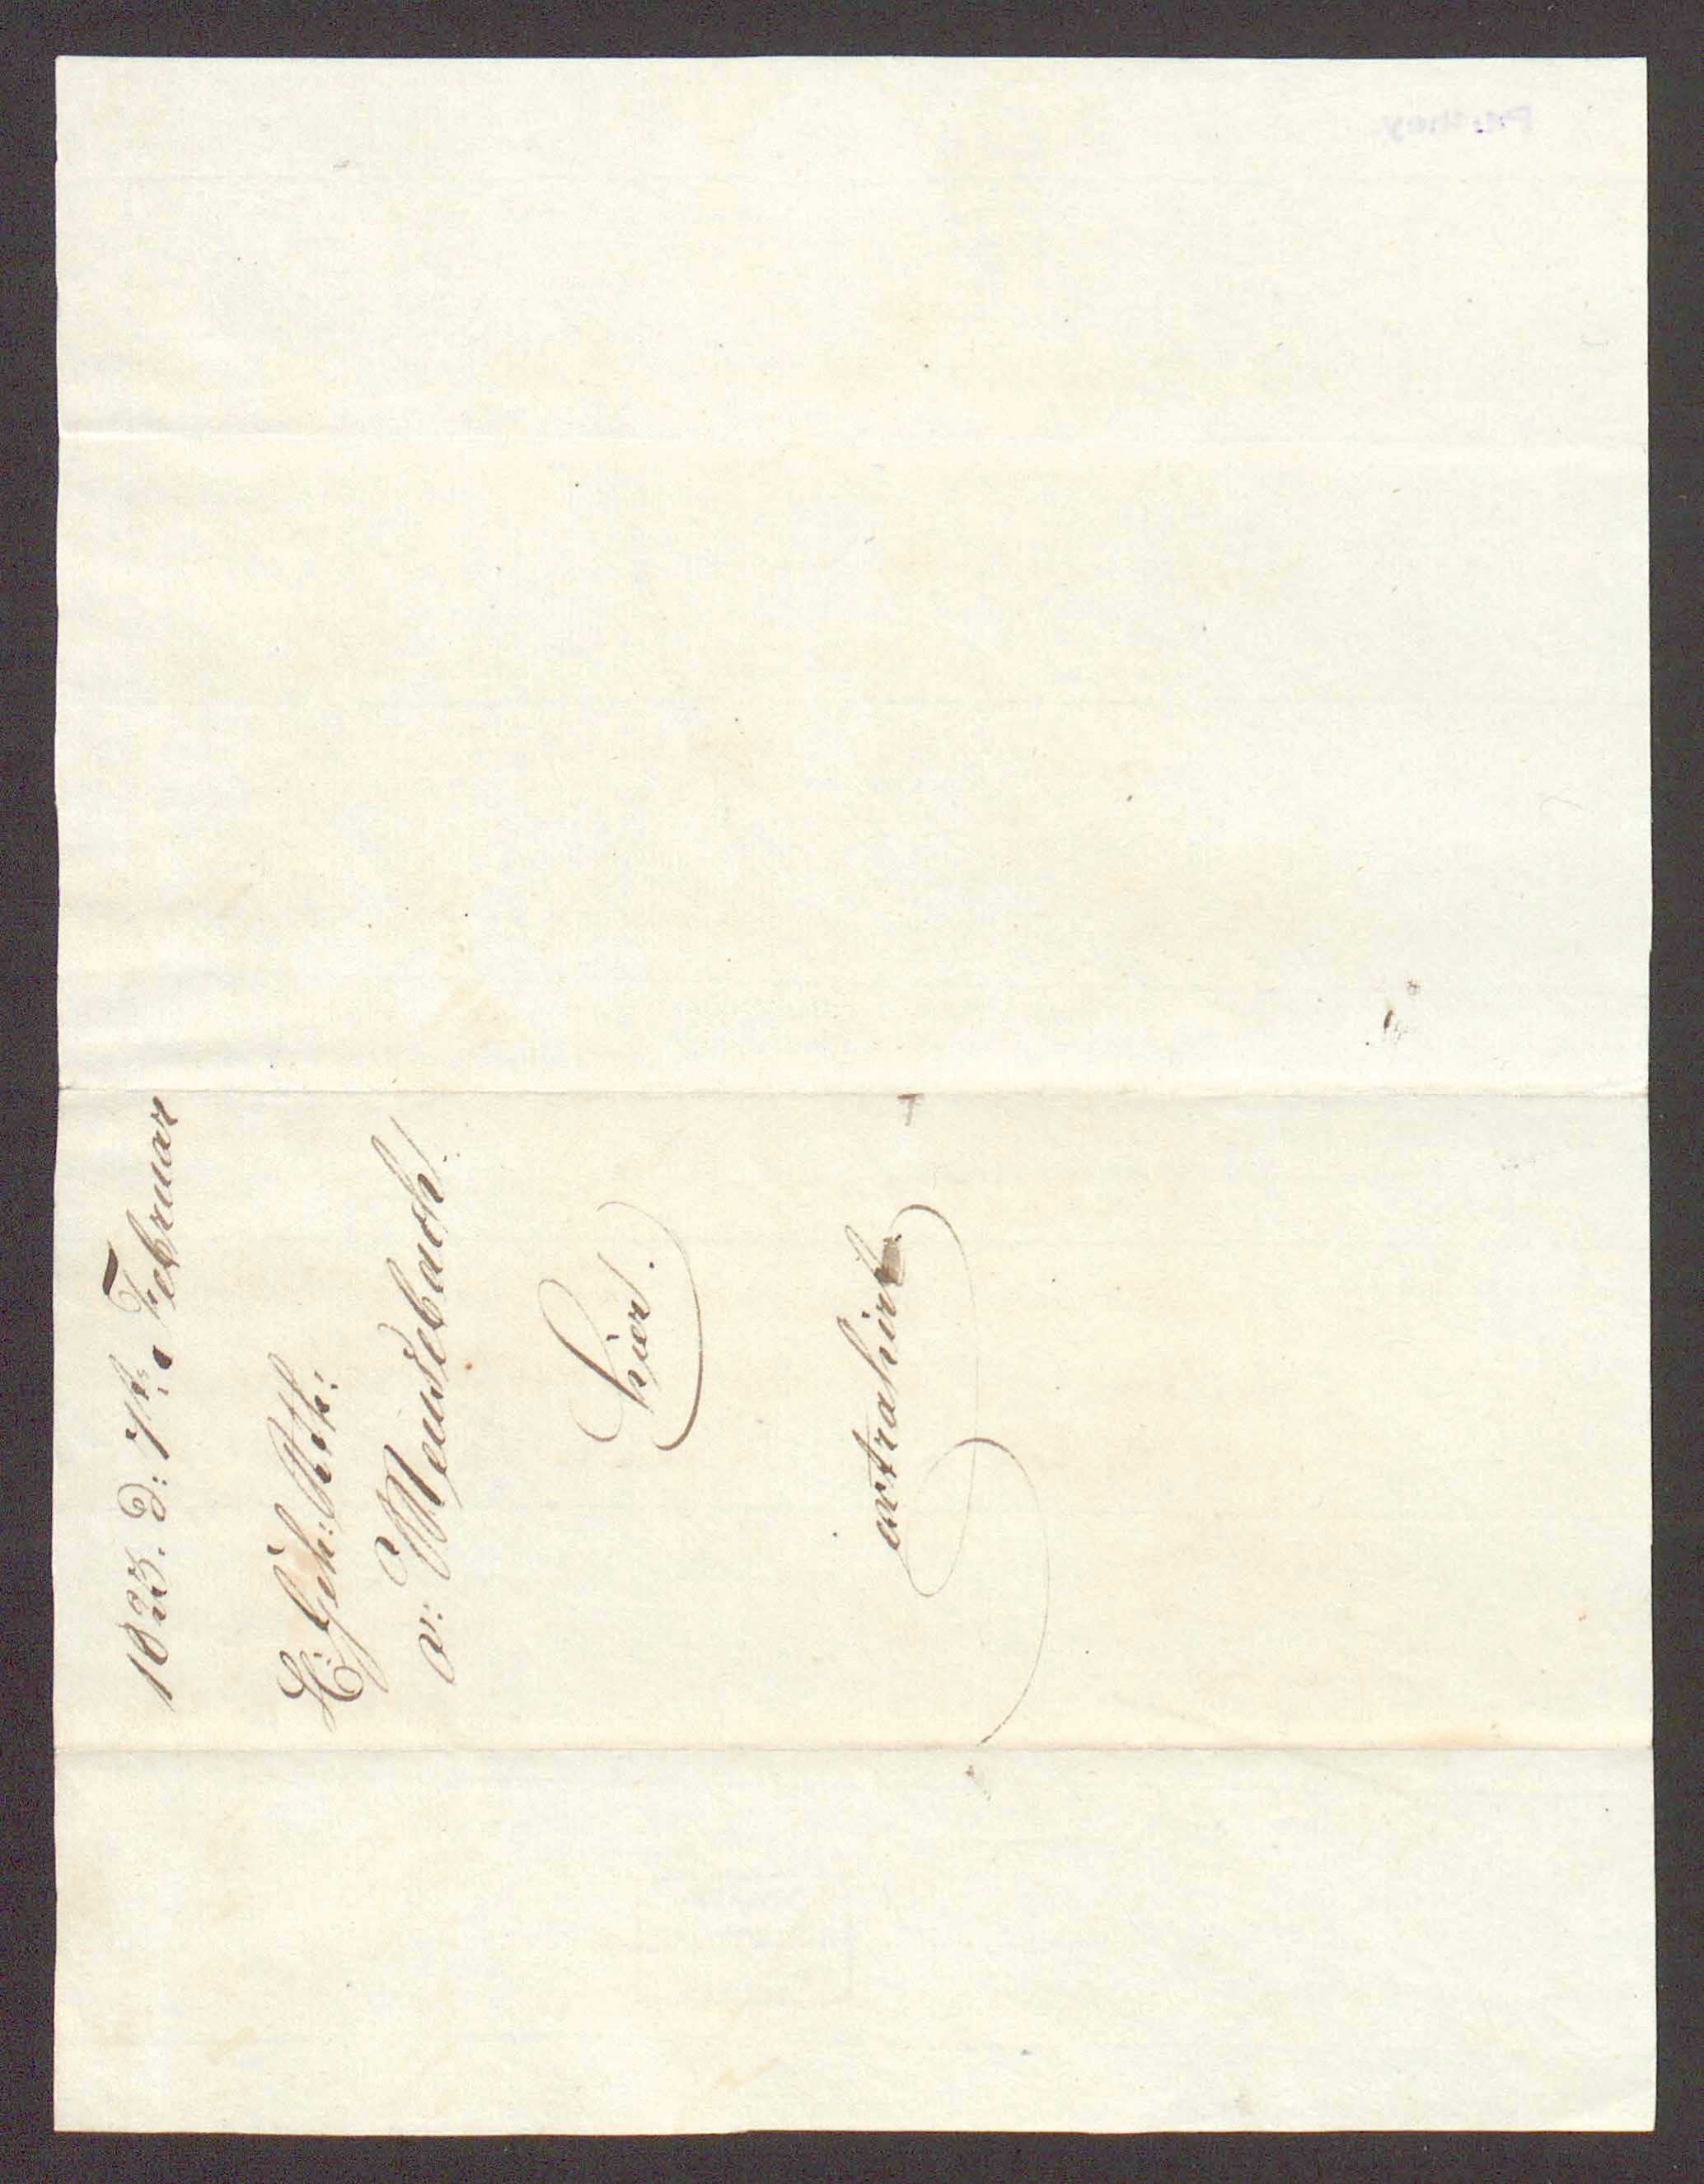 1823. d: 7t: Februar
H: Geh: Rth:
v: Meusebach!
hier.
extrahirt
Parthey